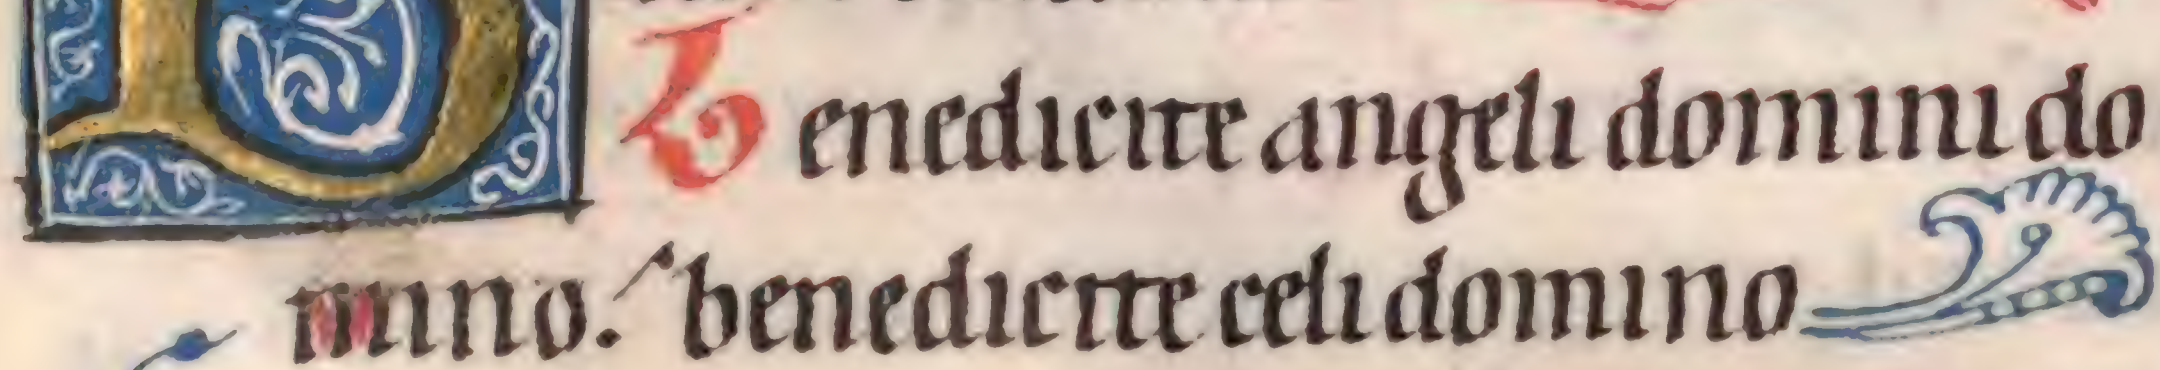 Benedicite angeli domini do
mino. benedicite celi domino